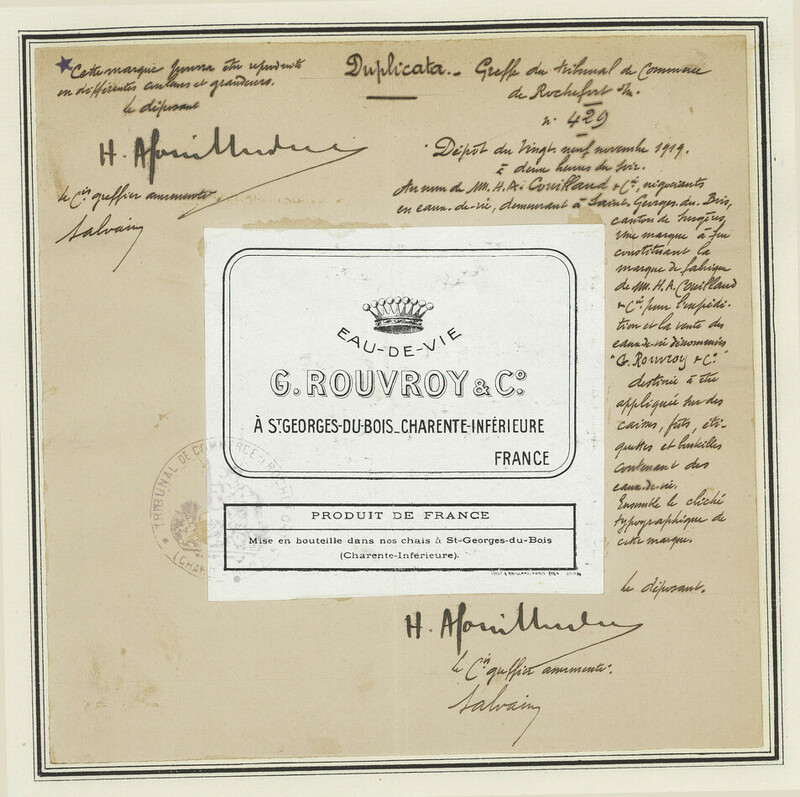 Cette marque pourra être reproduite
en différentes couleurs et grandeurs.
le déposant
le Cis greffier assermenté
Salvain
Duplicata._ Greffe du tribunal de Commerce
de Rochefort s/m.
n° 429
Dépôt du Vingt neuf novembre 1919.
à deux heures du soir.
Au nom de MM. H.A. Couillaud & Cie, négociants
en eaux-de-vie, demeurant à Saint Georges du Bois,
canton de Surgères,
Une marque à feu
constituant la
marque de fabrique
de MM. H.A. Couillaud
& Cie pour l'expédi-
tion et la vente des
eaux-de-vie dénommées
"G. Rouvroy & Cº"
destinée à être
appliquée sur des
caisses, fûts, éti-
quettes et bouteilles
contenant des
eaux-de-vie.
Ensemble le cliché
typographique de
cette marque.
EAU-DE-VIE
G. ROUVROY & Cº.
À ST GEORGES-DU-BOIS_CHARENTE-INFÉRIEURE
FRANCE
TRIBUNAL DE COMMERCE
PRODUIT DE FRANCE
Mise en bouteille dans nos chais à St-Georges-du-Bois
(Charente-Inférieure).
le déposant.
le Cis greffier assermenté.
Salvain